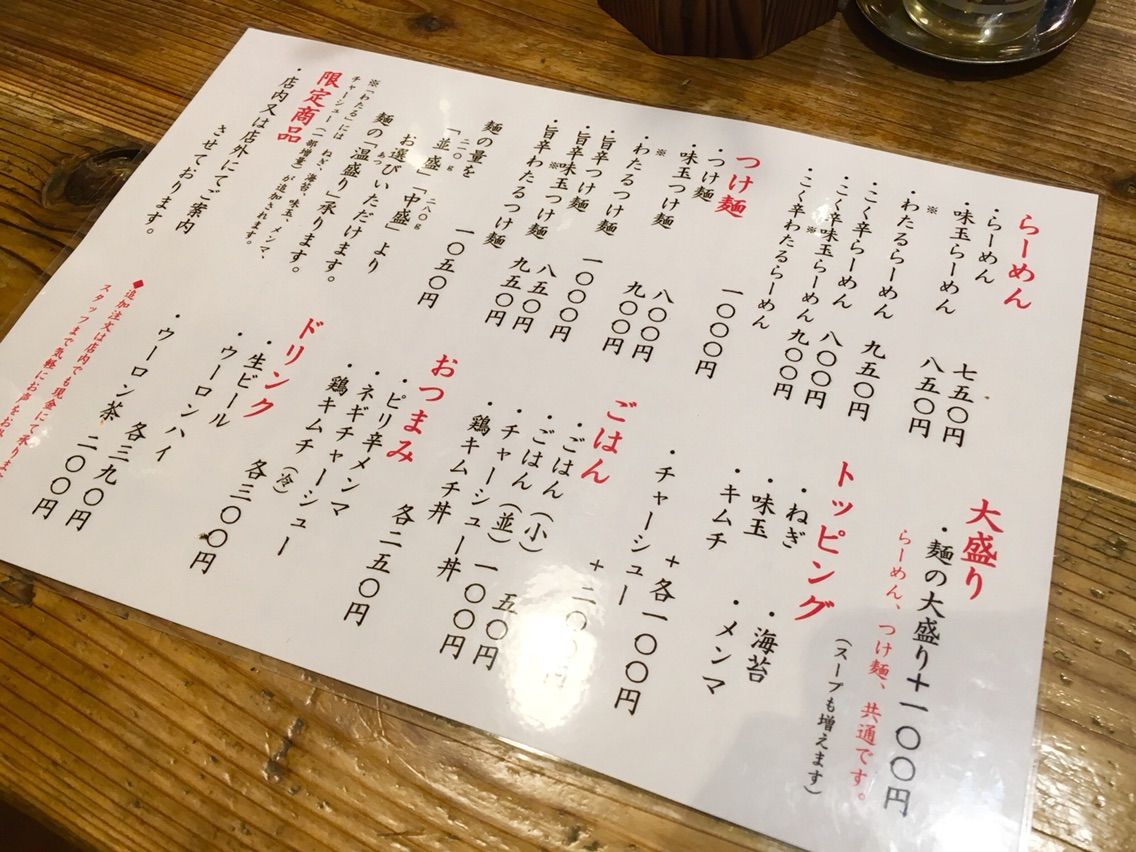 らーめん
・らーめん 七五〇円
・味玉らーめん 八五〇円
※
・わたるらーめん 九五〇円
・こく辛らーめん 八〇〇円
・こく辛味玉らーめん 九〇〇円
※
・こく辛わたるらーめん 一〇〇〇円
つけ麺
・つけ麺 八〇〇円
・味玉つけ麺 九〇〇円
※
・わたるつけ麺 一〇〇〇円
・旨辛つけ麺 八五〇円
・旨辛味玉つけ麺 九五〇円
※
・旨辛わたるつけ麺 一〇五〇円
麺の量を
二一〇g 二八〇g
「並盛」「中盛」より
お選びいただけます。
あつ
麺の「温盛り」承ります。
※「わたる」には ねぎ、海苔、味玉、メンマ、
チャーシュー（一部海老）が追加されます。
限定商品
・店内又は店外にてご案内
させております。
大盛り
・麺の大盛り＋一〇〇円
らーめん、つけ麺、共通です。
（スープも増えます）
トッピング
・ねぎ ・海苔
・味玉 ・メンマ
・キムチ
＋各一〇〇円
・チャーシュー
＋二〇〇円
ごはん
・ごはん（小） 五〇円
・ごはん（並） 一〇〇円
・チャーシュー丼
・鶏キムチ丼
各二五〇円
おつまみ
・ピリ辛メンマ
・ネギチャーシュー
・鶏キムチ（冷）
各三〇〇円
ドリンク
・生ビール
・ウーロンハイ
各三九〇円
・ウーロン茶 二〇〇円
◆追加注文は店内でも現金にて承りま
スタッフまで気軽にお声をお